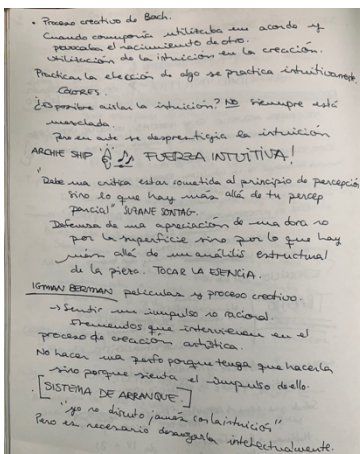 • Proceso creativo de Bach.
Cuando componía utilizaba un acorde y
provocaba el nacimiento de otro.
Utilización de la intuición en la creación.
Practicar la elección de algo se practica intuitivamente.
COLORES.
¿Es posible aislar la intuición? NO siempre está
mezclada.
Pero en arte se desprestigia la intuición
ARCHIE SHIP FUERZA INTUITIVA!
"Debe una crítica estar sometida al principio de percepción
sino lo que hay más allá de tu percep
parcial" SUZANE SONTAG.
Defensa de una apreciación de una obra no
por la superficie sino por lo que hay
más allá de un análisis estructural
de la pieza. TOCAR LA ESENCIA.
IGMAN BERMAN películas y proceso creativo.
→ Sentir un impulso no racional.
Elementos que intervienen en el
proceso de creación artística.
No hacer una perfo porque tenga que hacerla
sino porque sienta el impulso de ello.
[SISTEMA DE ARRANQUE.]
"yo no discuto jamás con la intuición"
Pero es necesario intelectualmente.